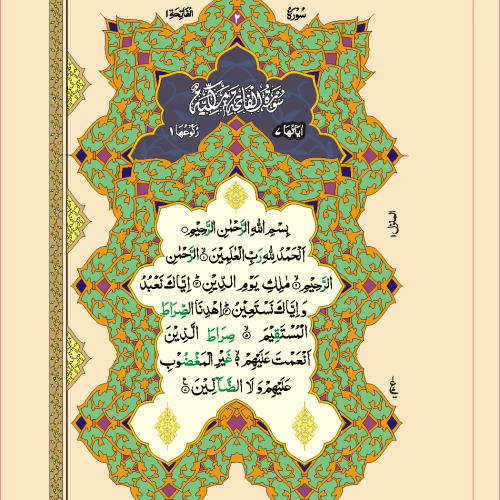 سُوْرَةُ
٢
اَلْفَاتِحَةِ ١
سُوْرَةُ الْفَاتِحَةِ مَكِّيَّةٌ
اٰيَاتُهَا ٧
رُكُوْعُهَا ١
بِسْمِ اللّٰهِ الرَّحْمٰنِ الرَّحِيْمِ
اَلْحَمْدُ لِلّٰهِ رَبِّ الْعٰلَمِيْنَ ۙ الرَّحْمٰنِ
الرَّحِيْمِ ۙ مٰلِكِ يَوْمِ الدِّيْنِ ۗ اِيَّاكَ نَعْبُدُ
وَاِيَّاكَ نَسْتَعِيْنُ ۗ اِهْدِنَا الصِّرَاطَ
الْمُسْتَقِيْمَ ۙ صِرَاطَ الَّذِيْنَ
اَنْعَمْتَ عَلَيْهِمْ ۙ غَيْرِ الْمَغْضُوْبِ
عَلَيْهِمْ وَلَا الضَّآلِّيْنَ ۧ
المنزل ١